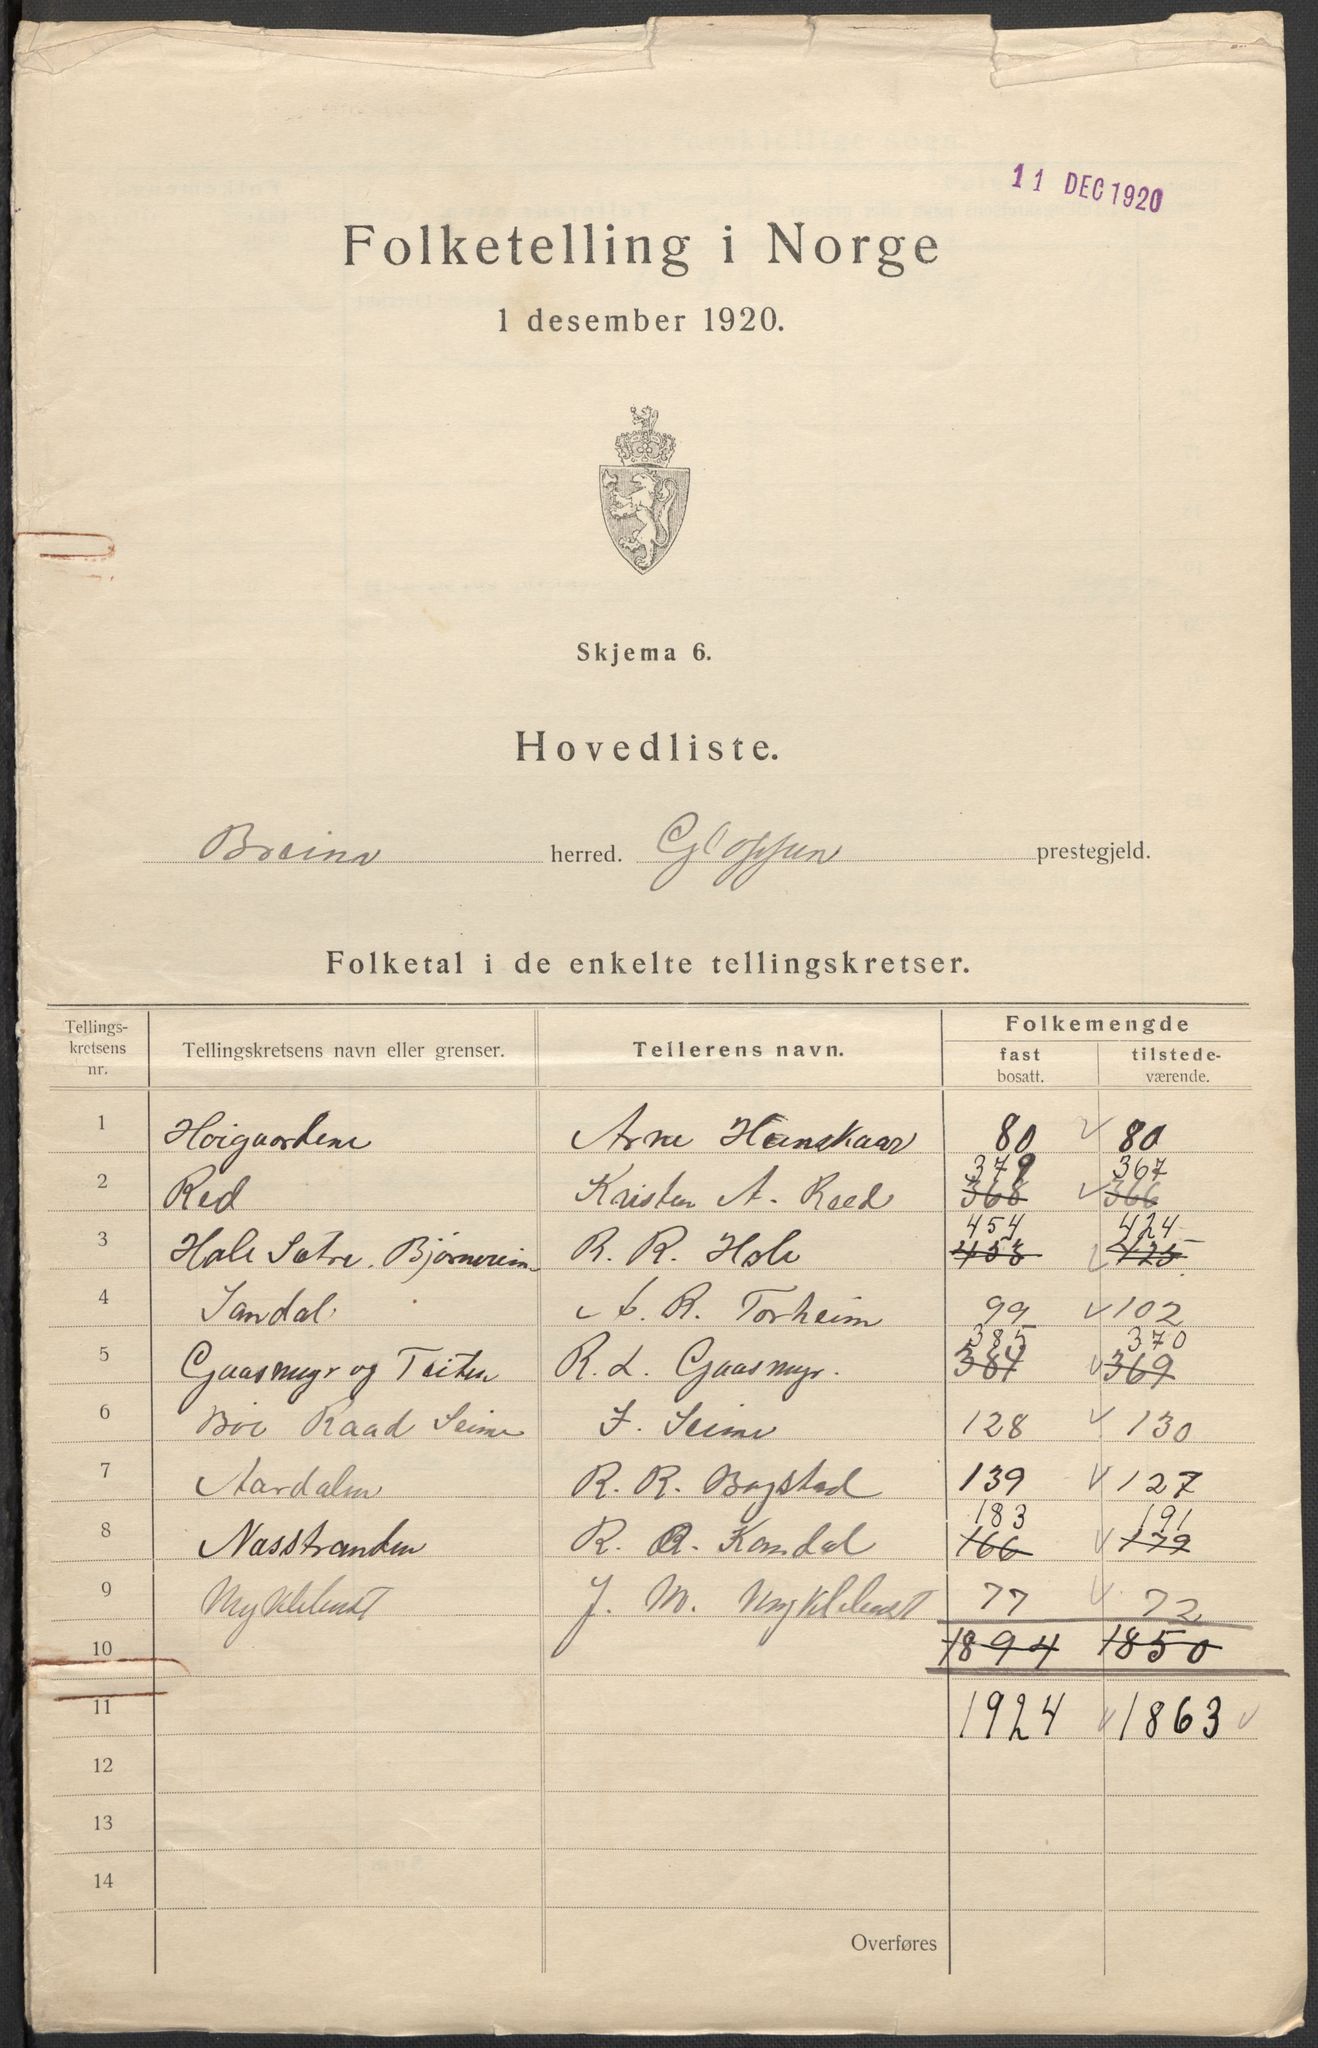 11 DEC 1920
Folketelling i Norge
1 desember 1920.
Skjema 6.
Hovedliste.
Breim herred. Gloppen prestegjeld.
Folketal i de enkelte tellingskretser.
Tellings-kretsens nr. Tellingskretsens navn eller grenser. Tellerens navn. Folkemengde
fast bosatt. tilstede-værende.
1 Høigaardene Arne Hanskaar 80 80
379 367
2 Red Kristen A. Reed 368 366
454 424
3 Hole Sætre, Bjørnereim R. R. Hole 453 425
4 Sandal A. R. Torheim 99 102
385 370
5 Gaasmyr og Teiten R. L. Gaasmyr. 384 369
6 Bøe Raad Seime J. Seime 128 130
7 Aardalen R. R. Bogstad 139 127
183 191
8 Nosstranden R. R. Komdal 166 179
9 Myklebust J. M. Myklebust 77 72
10 1894 1850
11 1924 1863
12
13
14
Overføres